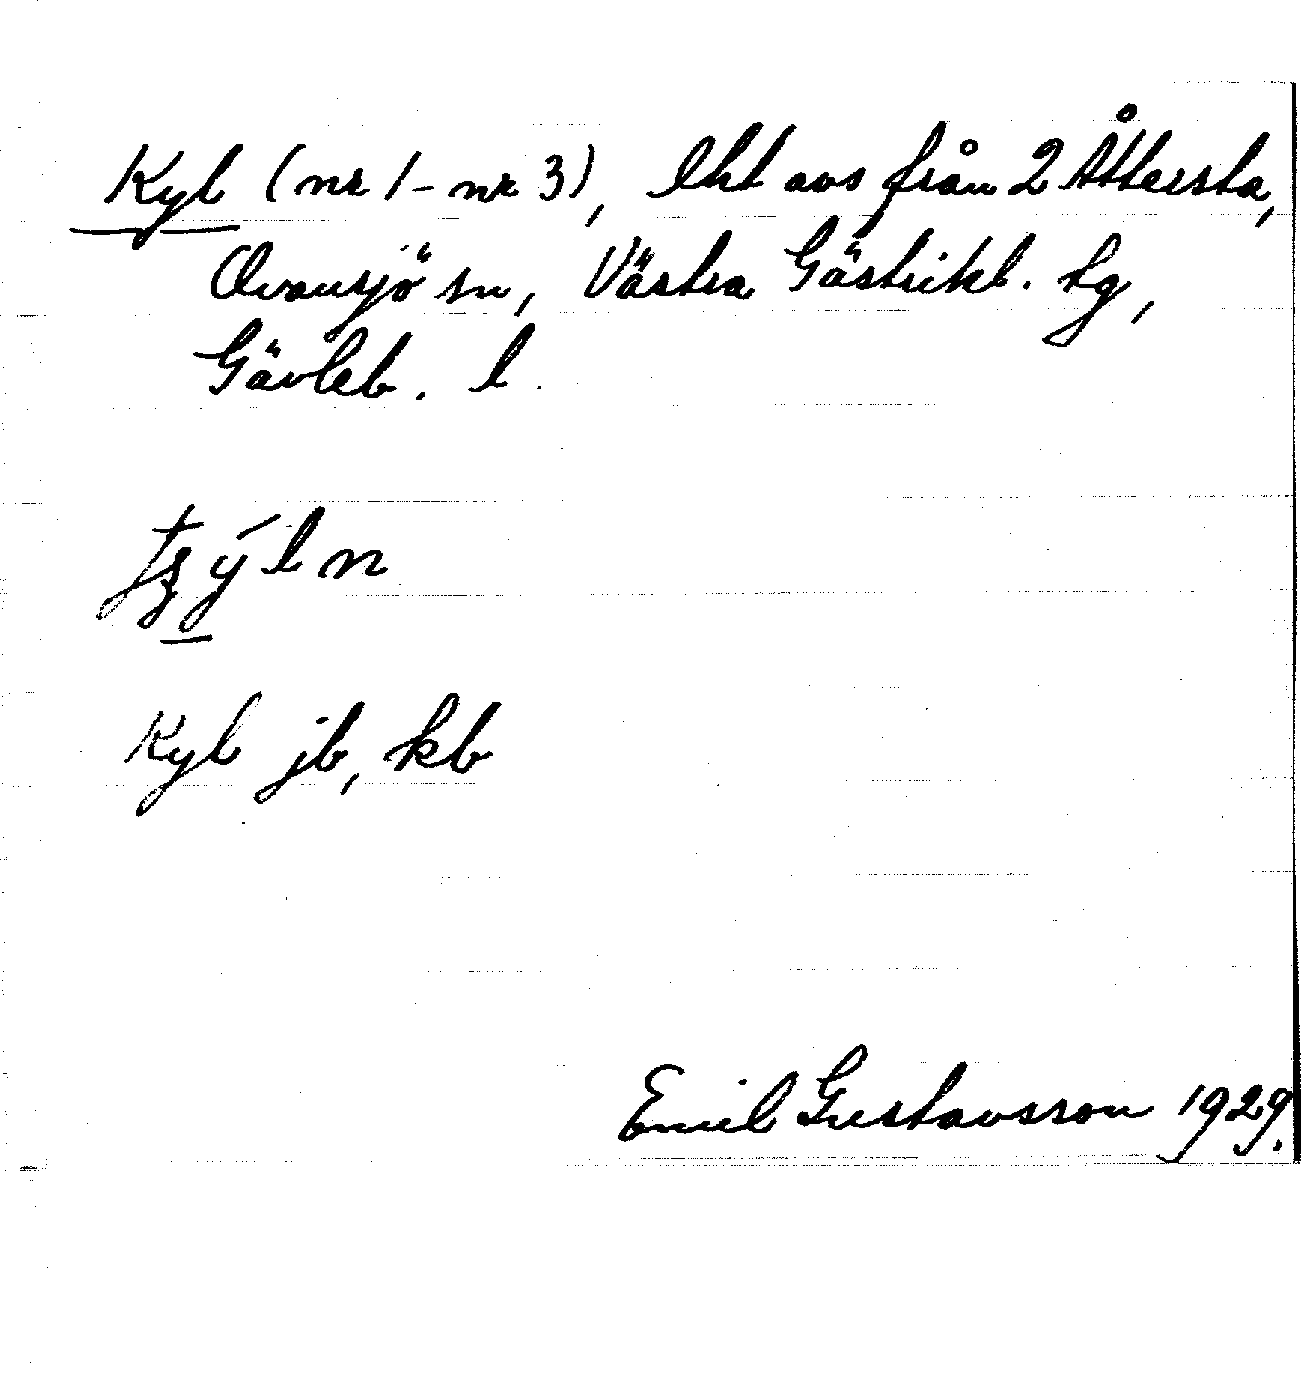 Kyl (nr 1 - nr 3), lht avs från 2 Åttersta,
Ovansjö sn, Västra Gästrikl. tg,
Gävleb. l.
ýln
Kyl jb, kb
Emil Gustavsson 1929.